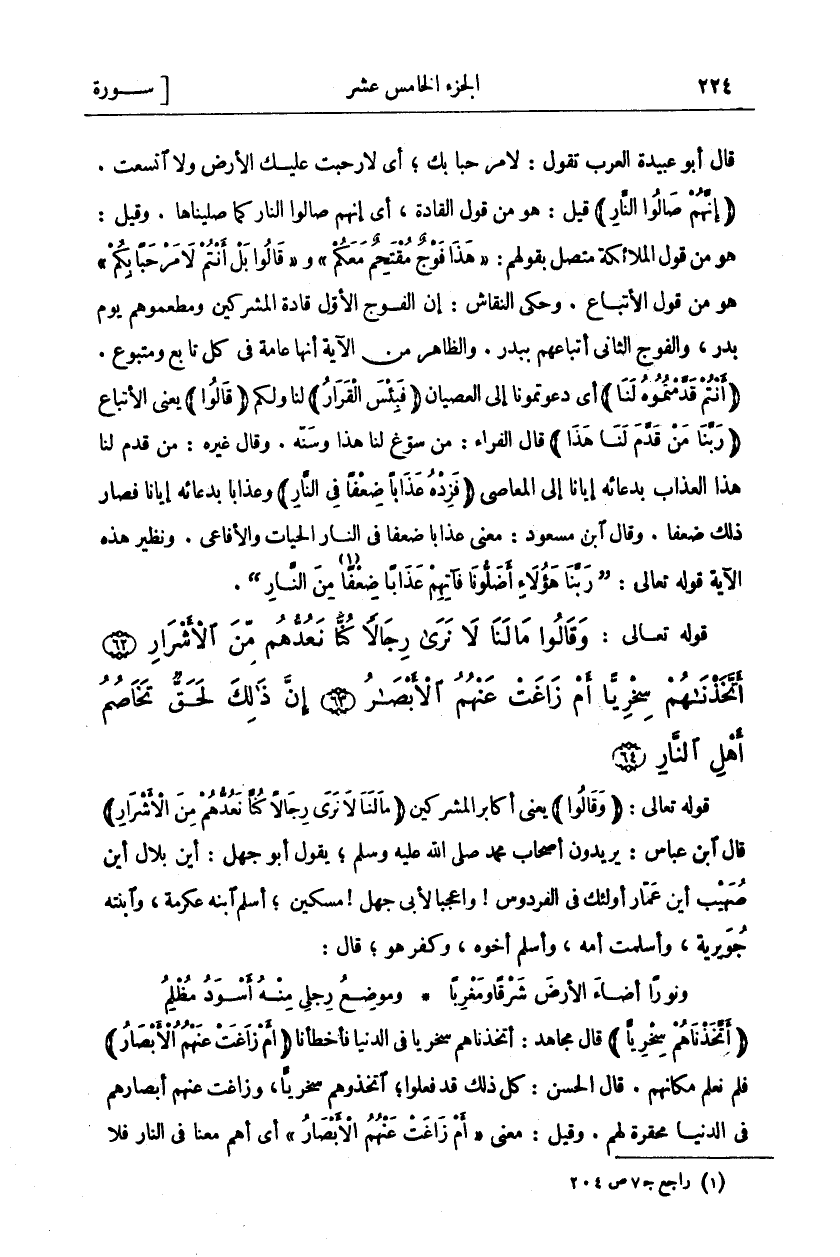 ٢٢٤ الجزء الخامس عشر [ ســورة
قال أبو عبيدة العرب تقول : لا مرحبا بك ؛ أى لا رحبت عليك الأرض ولا ٱتسعت .
﴿إِنَّهُمْ صَالُوا النَّارِ﴾ قيل : هو من قول القادة ، أى إنهم صالوا النار كما صليناها . وقيل :
هو من قول الملائكة متصل بقولهم : « هَذَا فَوْجٌ مُقْتَحِمٌ مَعَكُمْ » و « قَالُوا بَلْ أَنْتُمْ لَا مَرْحَبًا بِكُمْ »
هو من قول الأتباع . وحكى النقاش : إن الفوج الأوّل قادة المشركين ومطعموهم يوم
بدر ، والفوج الثانى أتباعهم ببدر . والظاهر من الآية أنها عامة فى كل تابع ومتبوع .
﴿أَنْتُمْ قَدَّمْتُمُوهُ لَنَا﴾ أى دعوتمونا إلى العصيان ﴿فَبِئْسَ الْقَرَارُ﴾ لنا ولكم ﴿قَالُوا﴾ يعنى الأتباع
﴿رَبَّنَا مَنْ قَدَّمَ لَنَا هَذَا﴾ قال الفراء : من سوّغ لنا هذا وسَنّه . وقال غيره : من قدم لنا
هذا العذاب بدعائه إيانا إلى المعاصى ﴿فَزِدْهُ عَذَابًا ضِعْفًا فِى النَّارِ﴾ وعذابا بدعائه إيانا فصار
ذلك ضعفا . وقال ٱبن مسعود : معنى عذابا ضعفا فى النار الحيات والأفاعى . ونظير هذه
الآية قوله تعالى : ” رَبَّنَا هَؤُلَاءِ أَضَلُّونَا فَآتِهِمْ عَذَابًا ضِعْفًا مِنَ النَّارِ “ (١) .
قوله تعــالى : وَقَالُوا مَا لَنَا لَا نَرَىٰ رِجَالًا كُنَّا نَعُدُّهُم مِّنَ ٱلْأَشْرَارِ ﴿٦٢﴾
أَتَّخَذْنَـٰهُمْ سِخْرِيًّا أَمْ زَاغَتْ عَنْهُمُ ٱلْأَبْصَـٰرُ ﴿٦٣﴾ إِنَّ ذَٰلِكَ لَحَقٌّ تَخَاصُمُ
أَهْلِ ٱلنَّارِ ﴿٦٤﴾
قوله تعالى : ﴿وَقَالُوا﴾ يعنى أكابر المشركين ﴿مَا لَنَا لَا نَرَى رِجَالًا كُنَّا نَعُدُّهُمْ مِنَ الْأَشْرَارِ﴾
قال ٱبن عباس : يريدون أصحاب محمد صلى الله عليه وسلم ؛ يقول أبو جهل : أين بلال أين
صُهَيْب أين عَمّار أولئك فى الفردوس ! واعجبا لأبى جهل ! مسكين ؛ أسلم ٱبنه عكرمة ، وٱبنته
جُوَيرية ، وأسلمت أمه ، وأسلم أخوه ، وكفر هو ؛ قال :
ونورًا أضــاءَ الأرضَ شَرْقًا ومَغْرِبًا * وموضِـعُ رِجلى مِنْـهُ أَسْـوَدُ مُظْلِمُ
﴿أَتَّخَذْنَاهُمْ سِخْرِيًّا﴾ قال مجاهد : أتخذناهم سخريا فى الدنيا فأخطأنا ﴿أَمْ زَاغَتْ عَنْهُمُ الْأَبْصَارُ﴾
فلم نعلم مكانهم . قال الحسن : كل ذلك قد فعلوا ؛ ٱتخذوهم سخريًّا ، وزاغت عنهم أبصارهم
فى الدنيا محقرة لهم . وقيل : معنى « أَمْ زَاغَتْ عَنْهُمُ الْأَبْصَارُ » أى أهم معنا فى النار فلا
(١) راجع جـ ٧ ص ٢٠٤